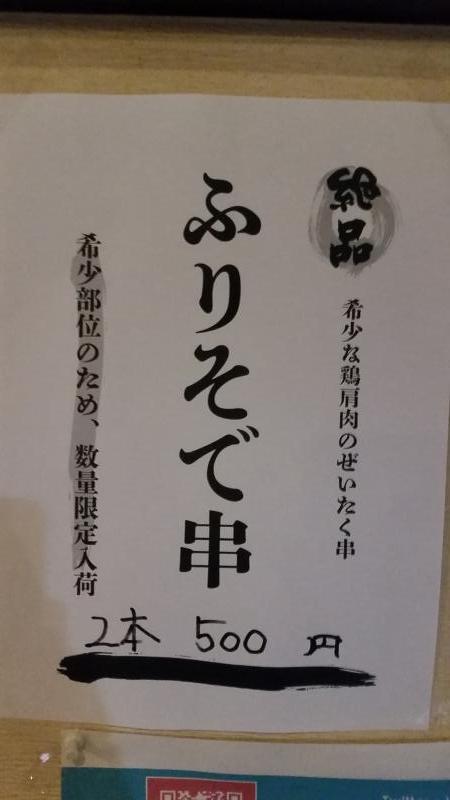 絶品
希少な鶏肩肉のぜいたく串
ふりそで串
希少部位のため、数量限定入荷
2本 500 円